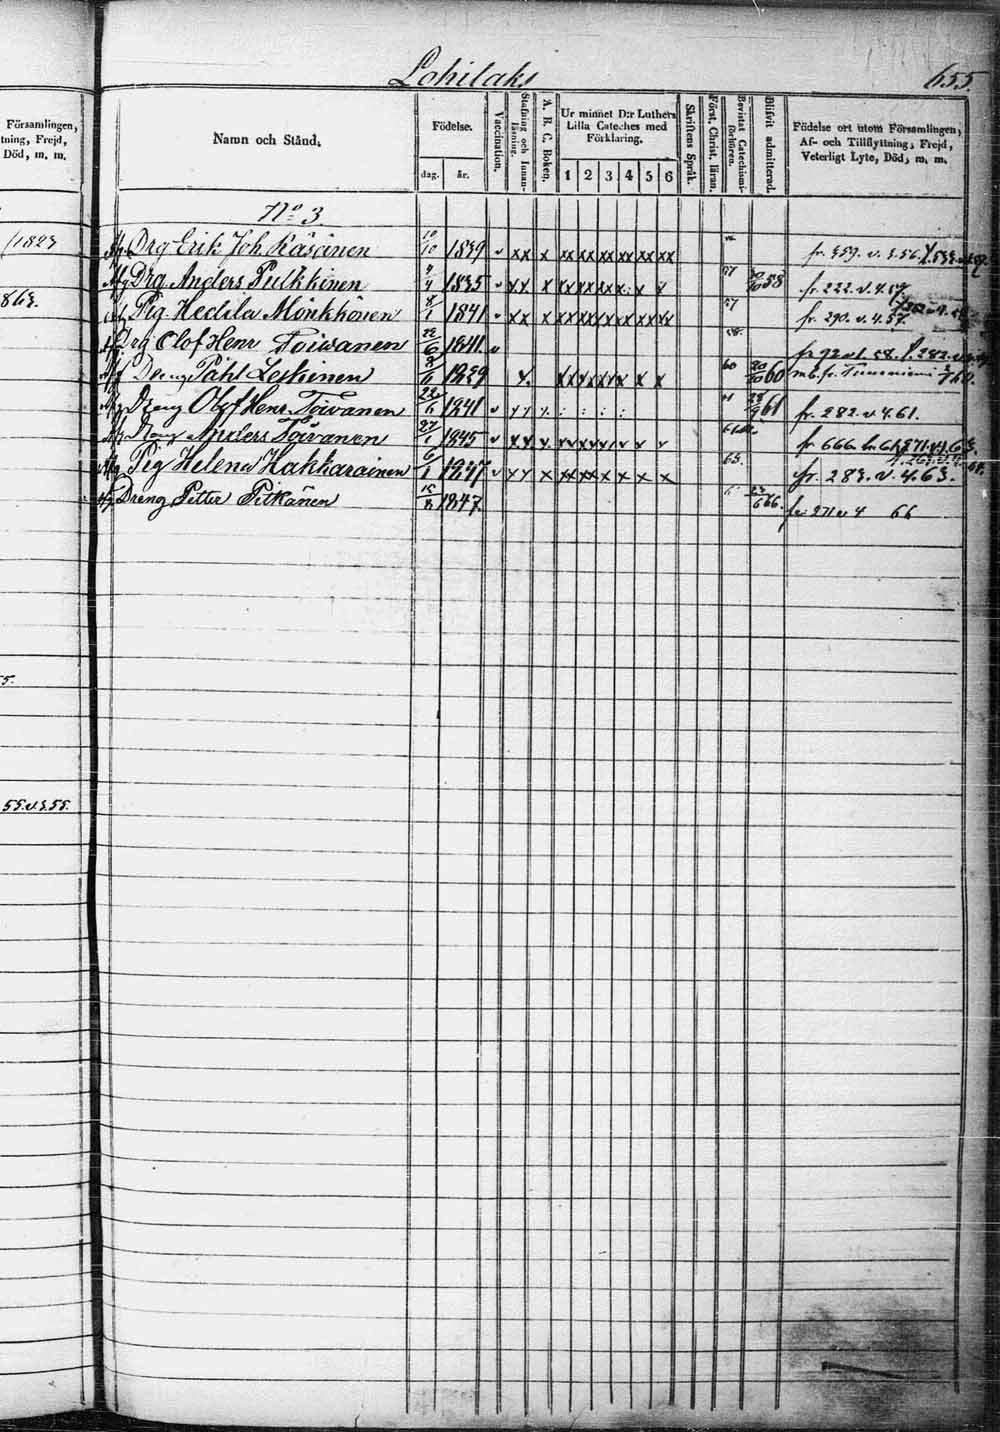 Lohilaks 655.
Församlingen,
tning, Frejd,
Död, m, m.
Namn och Stånd.
Födelse.
dag. år.
Vaccination.
Stafning och Innan-läsning.
A. B. C. Boken.
Ur minnet D:r Luthers
Lilla Cateches med
Förklaring.
1 2 3 4 5 6
Skriftens Språk.
Först. Christ. läran.
Bevistat Catechismi-förhören.
Blifvit admitterad.
Födelse ort utom Församlingen,
Af- och Tillflyttning, Frejd,
Veterligt Lyte, Död, m. m.
No 3
1823
Drg Erik Joh. Räsänen 10/10 1839 v x x x xx xx xx xx xx xx fr. 359. v. 3.56.
Drg Anders Pulkkinen 4/4 1835 v x x x 57 58 fr. 222. v. 4.57
863.
Pig Hedda Mönkkönen 8/1 1841 v x x x 57 fr. 290. v. 4.57.
Drg Olof Henr Toiwanen 22/6 1841. v 58. fr 92 v 1. 58. f. 282.
Dreng Påhl Leskinen 1829 x. 60 60 mb. fr.
Dreng Olof Henr. Toivanen 22/6 1841 v 61 fr. 282. v 4. 61.
Dreng Anders Toivanen 27/1 1845 v x x x fr 666.
Pig Helena Hakkarainen 6/1 1847 v x x x xx xx x x x x 63. fr. 283. v. 4. 63.
Dreng Petter Pitkänen 15/8 1847 66. fr. 271 v 4 66
5.
55. v. 3.55.